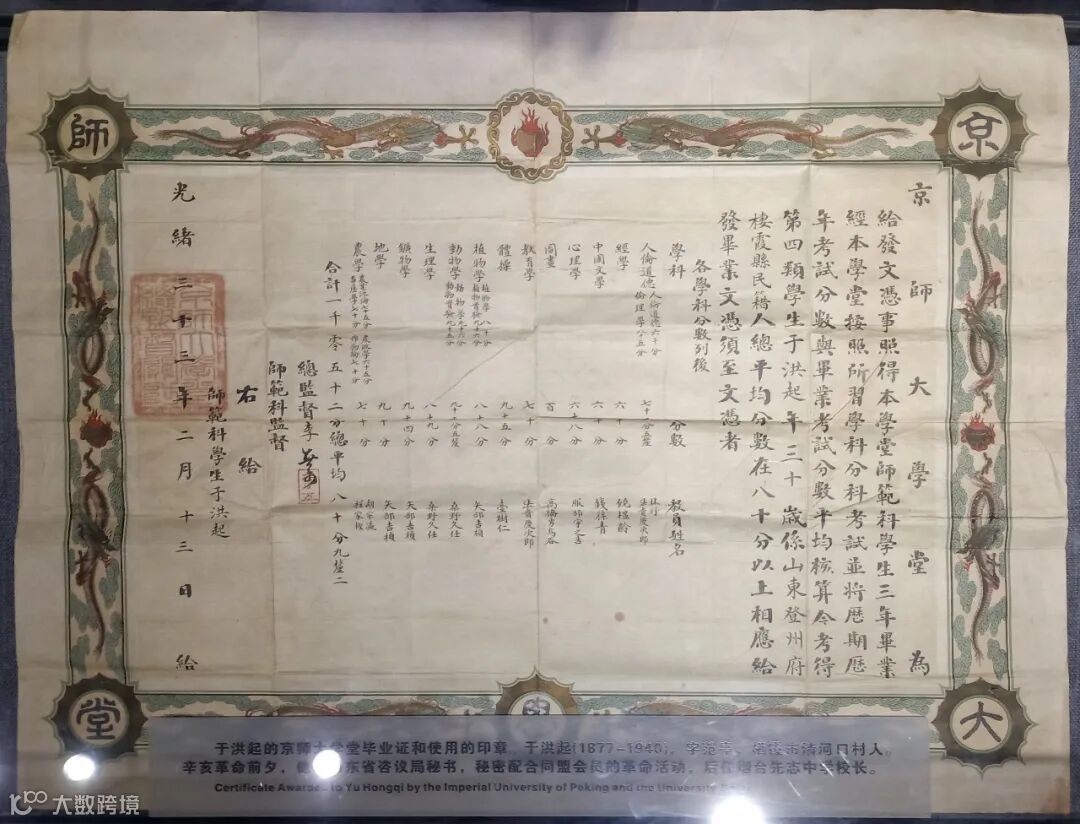 京師大學堂
京師大學堂為
給發文憑事照得本學堂師範科學生三年畢業
經本學堂按照所習學科分科考試並將歷期歷
年考試分數與畢業考試分數平均核算今考得
第四類學生于洪起年三十歲係山東登州府
棲霞縣民籍人總平均分數在八十分以上相應給
發畢業文憑須至文憑者
各學科分數列後
學科 分數 教員姓名
人倫道德 人倫道德六十分 倫理學八十五分 七十分五釐 法貴慶次郎
經學 六十分
中國文學 六十分 錢葆青
心理學 六十八分 服部宇之吉
圖畫 百分 高橋勇
教育學 七十分 法貴慶次郎
體操 九十五分 臺樹仁
植物學 植物學八十分 植物實驗九十六分 八十八分 矢部吉禎
動物學 動物學九十六分 動物實驗九十五分 九十分五釐 桑野久任
生理學 八十九分 桑野久任
鑛物學 九十四分 矢部吉禎
地學 九十分 矢部吉禎
農學 七十分 胡宗瀛 程家檉
合計一千零五十二分總平均八十分九釐二
總監督李
師範科監督
右給
師範科學生于洪起
光緒三十三年二月十三日給
于洪起的京师大学堂毕业证和使用的印章。于洪起(1877-1940)，字范亭，栖霞市诸河口村人。
辛亥革命前夕，他任山东省咨议局秘书，秘密配合同盟会员的革命活动，后任烟台先志中学校长。
Certificate Awarded to Yu Hongqi by the Imperial University of Peking and the University
大数跨境